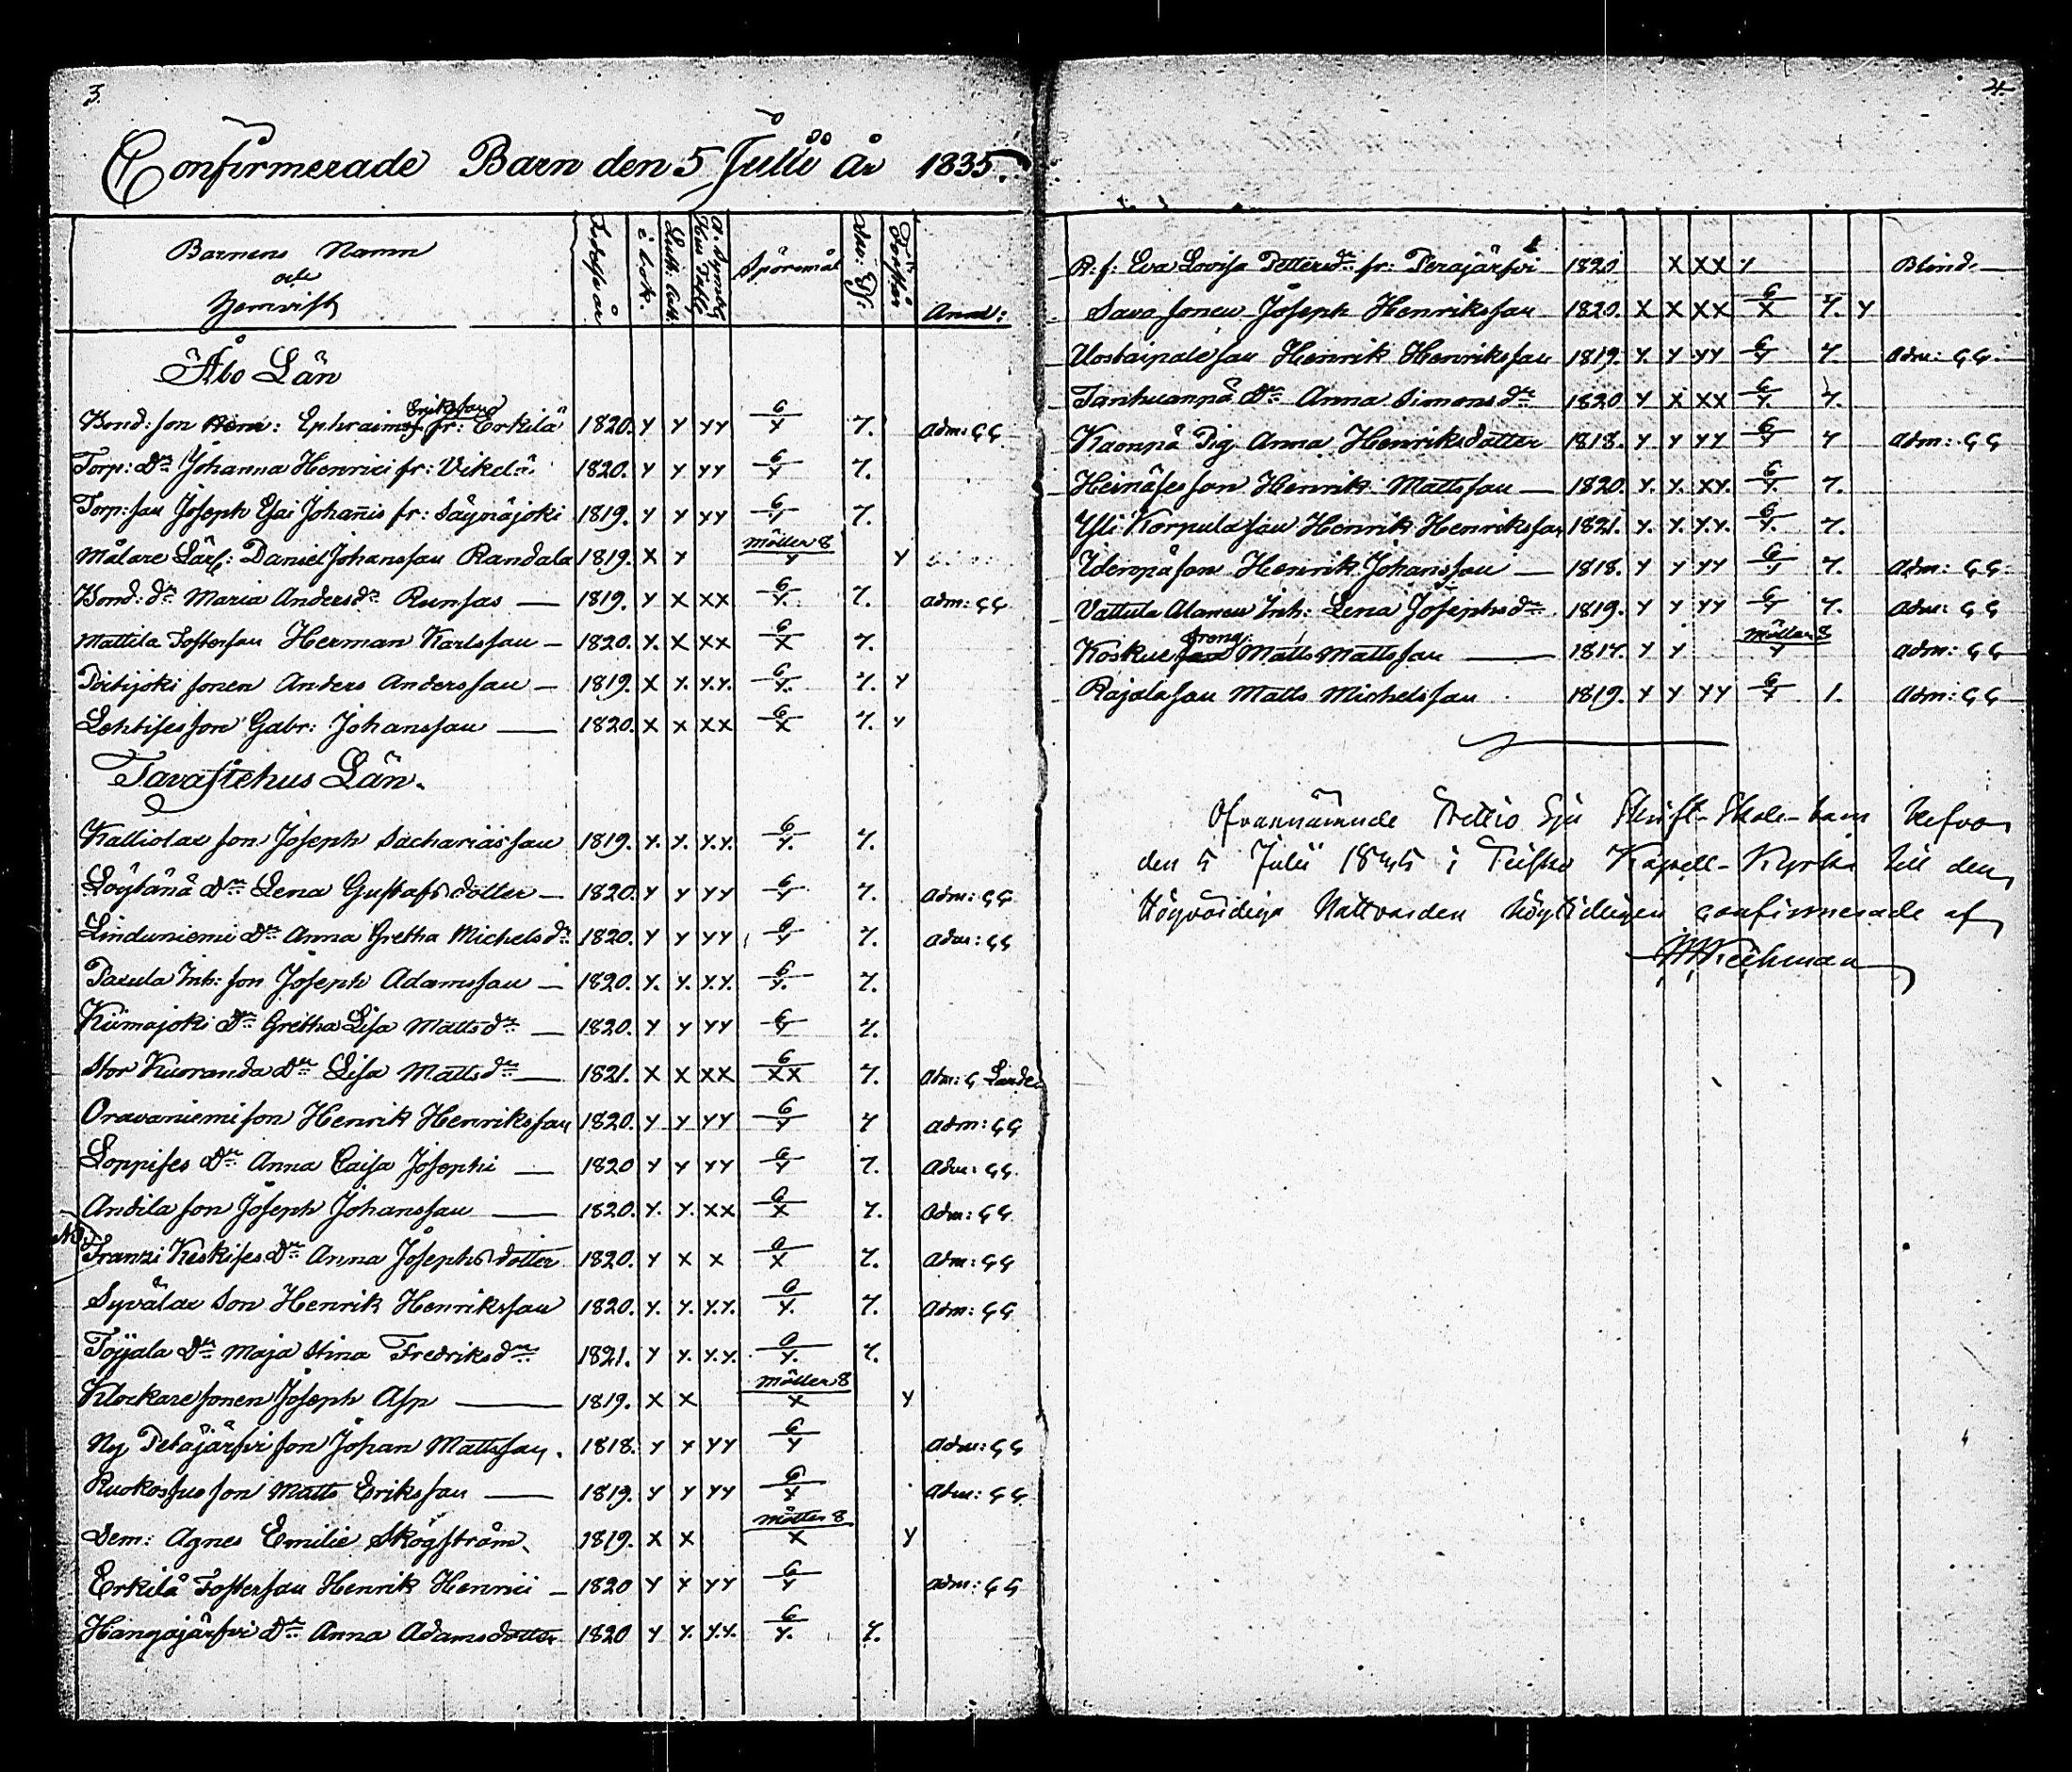 3.
Confirmerade Barn den 5 Julii år 1835.
Barnens Namn
och
Hemvist
Födelse år
i bok.
Luth: Cat:
A. Symb:
Hus Tafl:
Spörsmål
Förstår
Anm:
Åbo Län
Eriksson
Bond: son Ephraim fr: Erkilä 1820. y y yy 6/y 7. adm: GG
Torp: dr Johanna Henrici fr: Vikelä. 1820. y y yy 6/y 7.
Torp: son Joseph Esai Johañis fr: Säynäjoki 1819. y y yy 6/y 7.
Målare Lärl: Daniel Johansson Randala 1819. x y Möller 8/y y
Bond: dr Maria Andersdr Runsas — 1819. y x xx 6/y. 7. adm: GG
Mattila Fosterson Herman Karlsson — 1820. y. x xx 6/x 7.
Poitijoki sonen Anders Andersson — 1819. x y. y.y. 6/y. 7. y
Lehtises son Gabr: Johansson — 1820. x x xx 6/x 7. y
Tavastehus Län.
Kalliolax son Joseph Sachariasson 1819. y. y. y.y. 6/y. 7.
Löytänä dr Lena Gustafsdotter — 1820. y y yy 6/y 7. adm: GG
Linduniemi dr Anna Gretha Michelsdr 1820. y y yy 6/y 7. adm: GG
Paxula Inh: son Joseph Adamsson — 1820. y. y. y.y. 6/y. 7.
Kiimajoki dr Gretha Lisa Mattsdr — 1820. y y yy 6/y 7.
Stor Kuoranda dr Lisa Mattsdr — 1821. x x xx 6/xx 7. adm: G
Oravaniemi son Henrik Henriksson 1820. y y yy 6/y 7 adm: GG
Loppises dr Anna Caisa Josephi — 1820 y y yy 6/y 7. adm: GG.
Andila son Joseph Johansson — 1820. y. y. xx 6/x 7. adm: GG
NB. Franzi Keskises dr Anna Josephsdotter 1820. y x x 6/x 7. adm: GG
Syvälax son Henrik Henriksson 1820. y. y. y.y. 6/y. 7. adm: GG
Töyjala dr Maja Stina Fredriksdr 1821. y y. y.y. 6/y. 7.
Klockaresonen Joseph Asp — 1819. x x Möller 8/x y
Ny Petäjärfvi son Johan Mattsson. 1818. y y yy 6/y adm: GG
Ruokossuo son Matts Eriksson — 1819. y y yy 6/y adm: GG
Dem: Agnes Emilie Skogström. 1819. x x Möller 8/x y
Erkilä Fosterson Henrik Henrici — 1820 y y yy 6/y adm: GG
Hangajärfvi dr Anna Adamsdotter 1820 y y. y.y. 6/y. 7.
4.
R: f: Eva Lovisa Pettersdr fr: Perajärfvi 1820 x xx y Blind.
Savo sonen Joseph Henriksson 1820. x x xx 6/x 7. y
Uoskaipale son Henrik Henriksson 1819. y. y yy 6/y 7. adm: GG.
Tanhuanpä dr Anna Simonsdr 1820 y x xx 6/y. 7.
Kaonpä Pig. Anna Henriksdotter 1818. y y yy 6/y 7 adm: GG
Heinäses son Henrik Mattsson — 1820. y. y. xy. 6/y. 7.
Yli Korpula son Henrik Henriksson 1821. y. y. y.y. 6/y. 7.
Edenpä son Henrik Johansson — 1818. y y yy 6/y 7. adm: GG.
Vattula Alanen Inh: Lena Josephsdr 1819. y y yy 6/y 7. adm: GG
dreng
Koskue son Matts Mattsson — 1817. y y Möller 8/y adm: GG
Rajala son Matts Michelsson 1819. y y yy 6/y 1. adm: GG
Ofvannämnde Trettio Sju Skrift-Skole-barn blefvo
den 5 Julii 1835 i Teisko Kapell-Kyrka till den
Högvördiga Nattvarden högtideligen confirmerade af